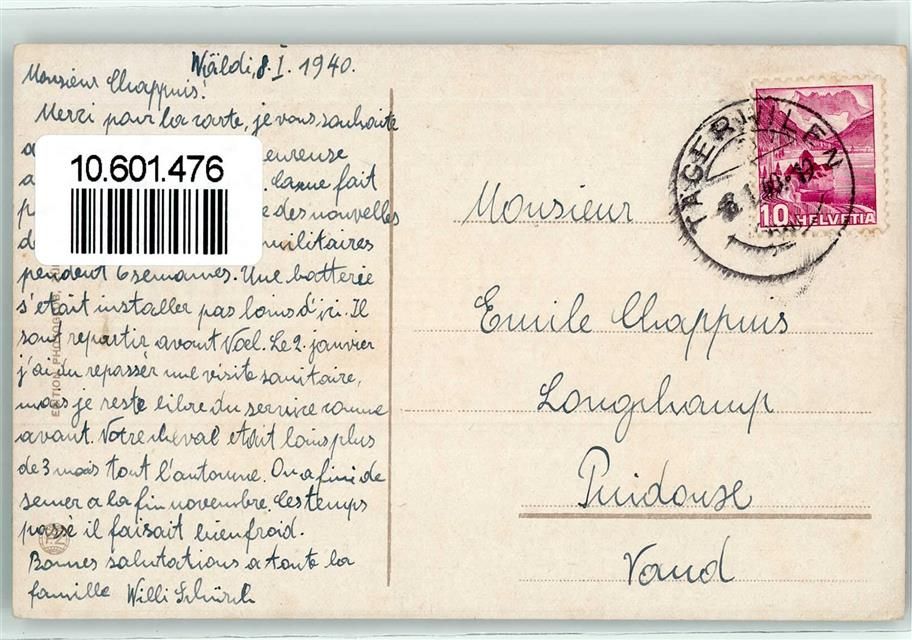 Wäldi, 8. I. 1940.
Monsieur Chappuis!
Merci pour la carte, je vous souhaite
eureuse
ça me fait
des nouvelles
militaires
pendent 6 semaines. Une batterie
s'était installer pas loins d'ici. Il
sont repartir avant Noel. Le 2. janvier
j'ai du repasser une visite sanitaire,
mais je reste libre du service comme
avant. Votre cheval etait loins plus
de 3 mois tout l'automne. On a fini de
semer a la fin novembre. Ces temps
passé il faisait bien froid.
Bonnes salutations a toute la
famille Willi Schürch
10.601.476
TÄGERWILEN
10 HELVETIA
Monsieur
Emile Chappuis
Longchamp
Puidoux
Vaud